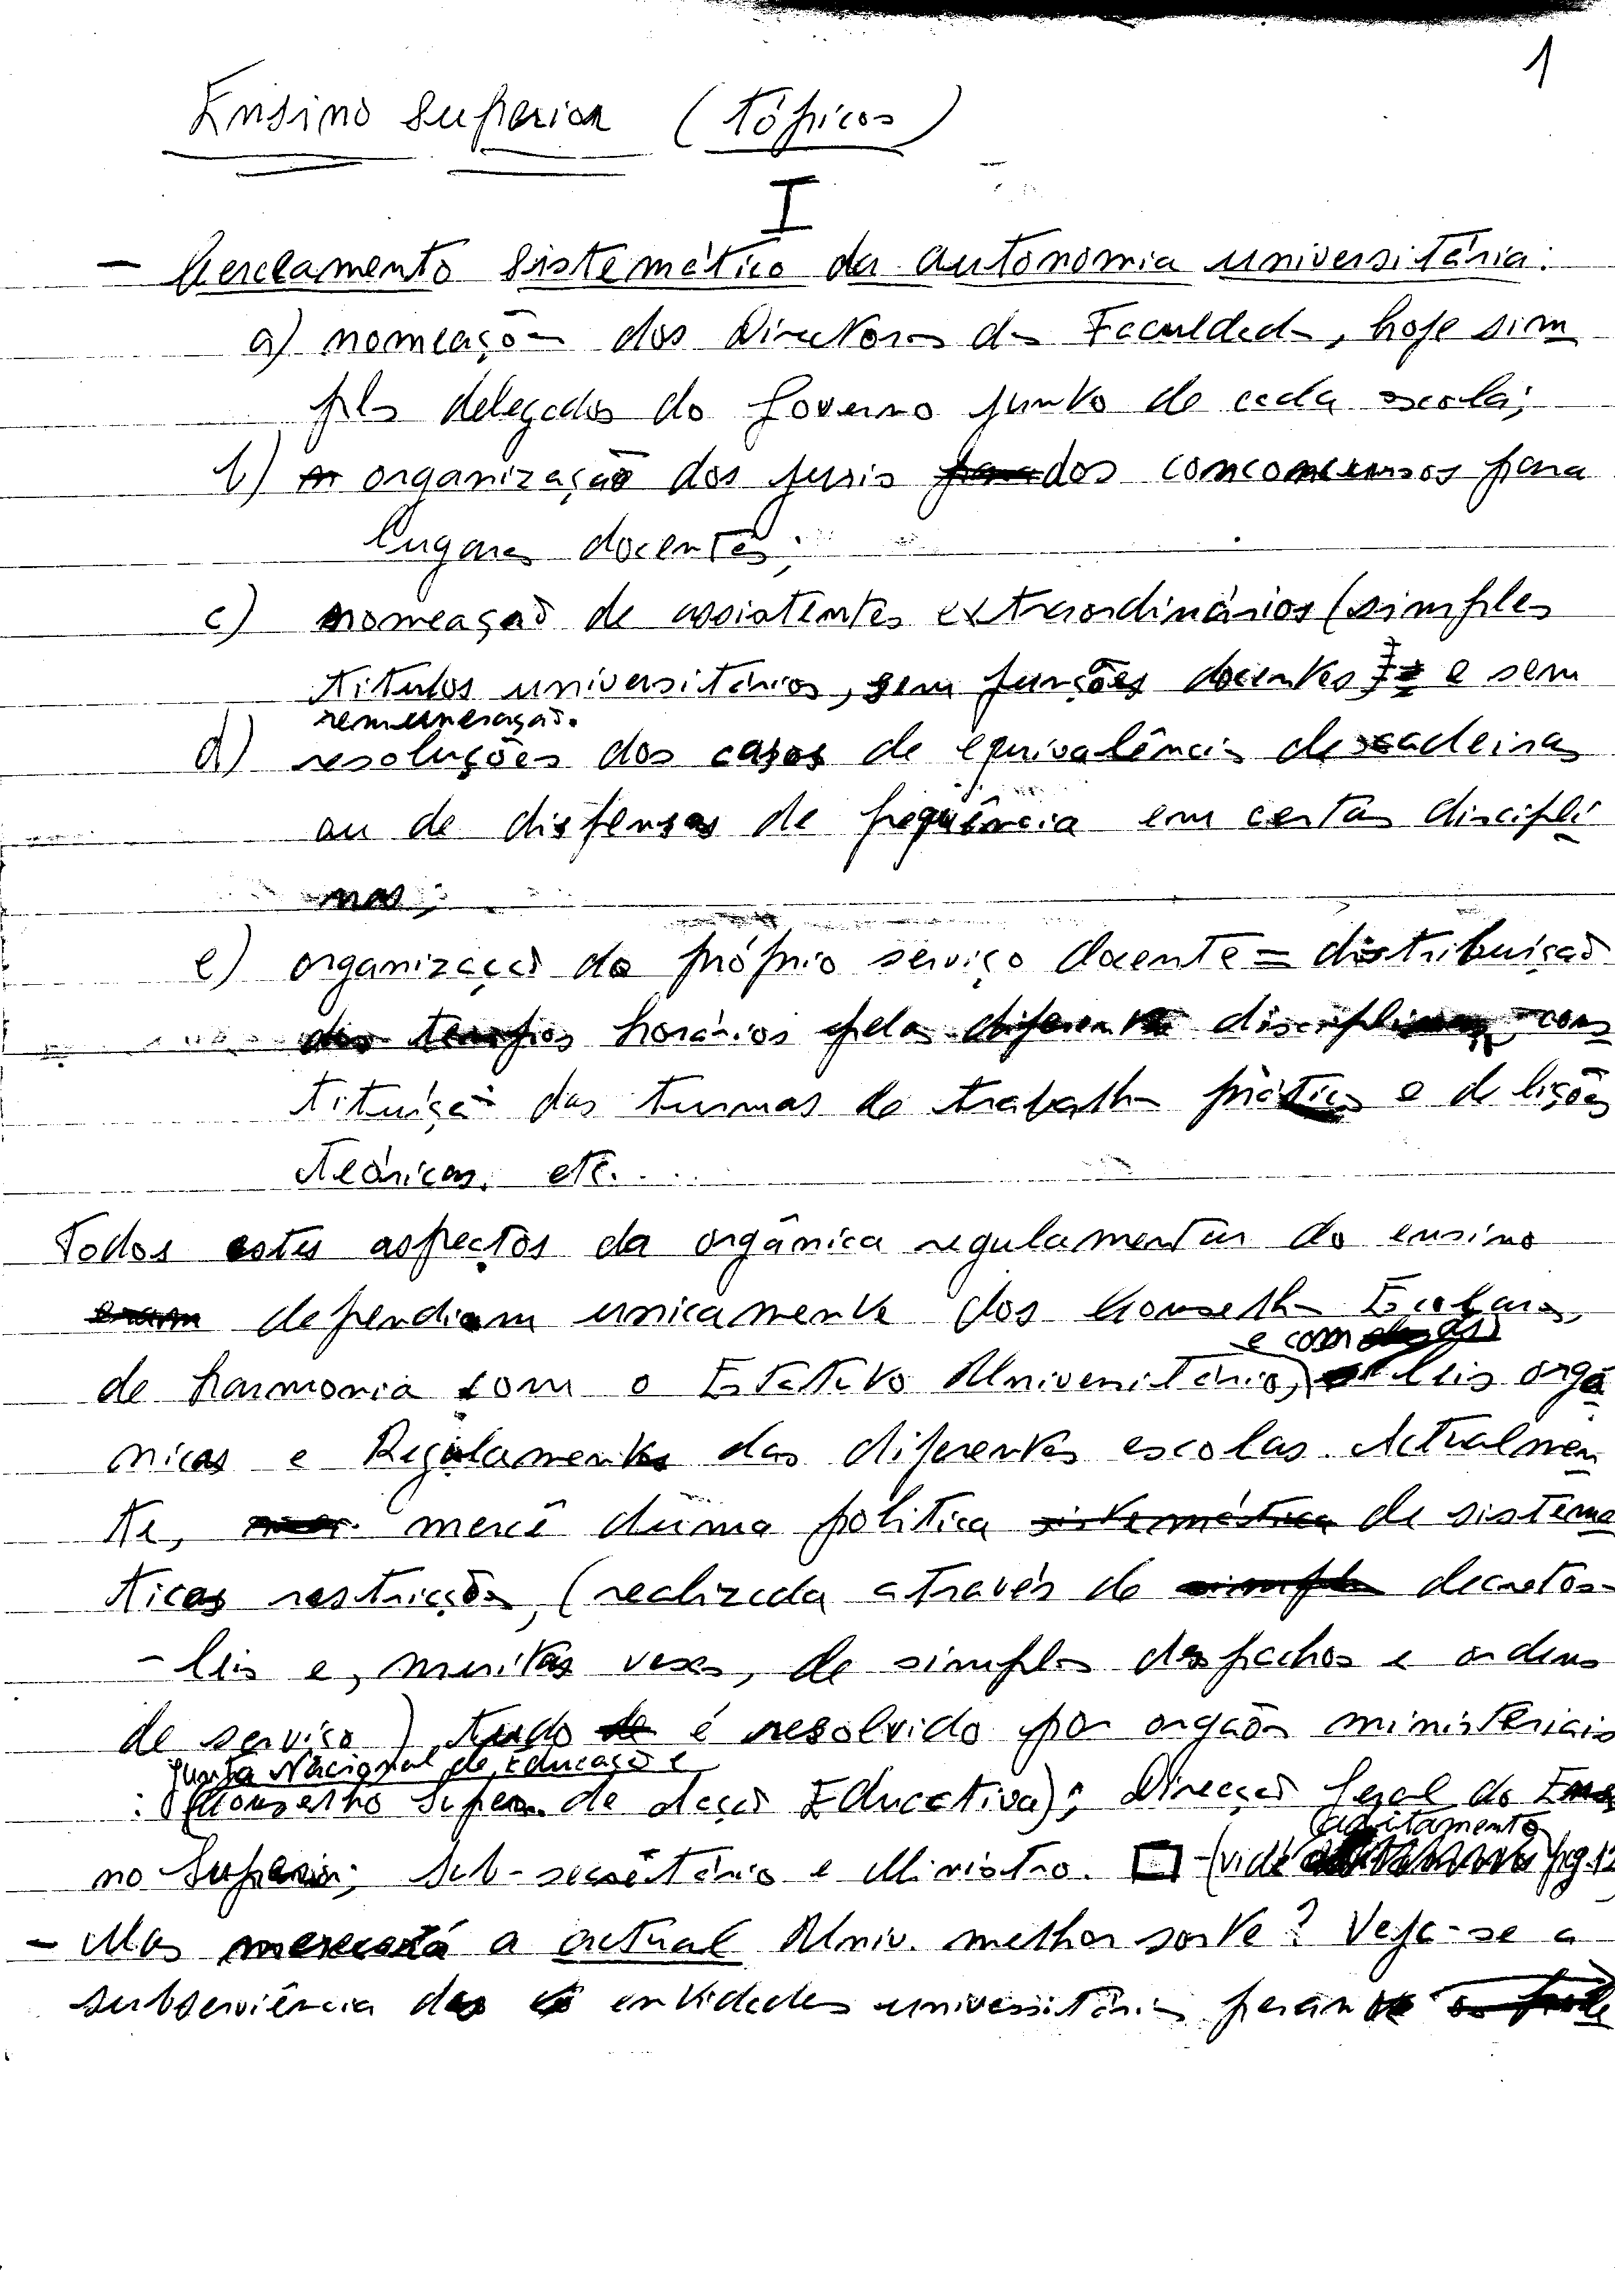 1
Ensino Superior (Tópicos)
I
- Cerceamento sistemático da autonomia universitária:
a) nomeações dos Directores das Faculdades, hoje sim
ples delegados do Governo junto de cada escola;
b) organização dos juris dos concursos para
lugares docentes;
c) nomeação de assistentes extraordinários (simples
títulos universitários, sem funções docentes e sem
remuneração.
d) resoluções dos casos de equivalência de cadeiras
ou de dispensas de frequência em certas discipli
nas;
e) organização do próprio serviço docente = distribuição
dos tempos horários pelas diferentes disciplinas, cons
tituição das turmas de trabalhos práticos e de lições
teóricas, etc....
Todos estes aspectos da orgânica regulamentar do ensino
eram dependiam unicamente dos Conselhos Escolares,
e com as
de harmonia com o Estatuto Universitário, leis orgâ
nicas e Regulamentos das diferentes escolas. Actualmen
te, mercê duma política sistemática de sistemá
ticas restricções, (realizada através de simples decretos-
-leis e, muitas vezes, de simples despachos e ordens
de serviço) tudo é resolvido por orgãos ministeriais
Junta Nacional de Educação e
: (Conselho Super. de Acção Educativa); Direcção Geral do Ensi
aditamento
no Superior; Sub-secretário e Ministro. (vide pg.12
- Mas merecerá a actual Univ. melhor sorte? Veja-se a
subserviência das entidades universitárias perante